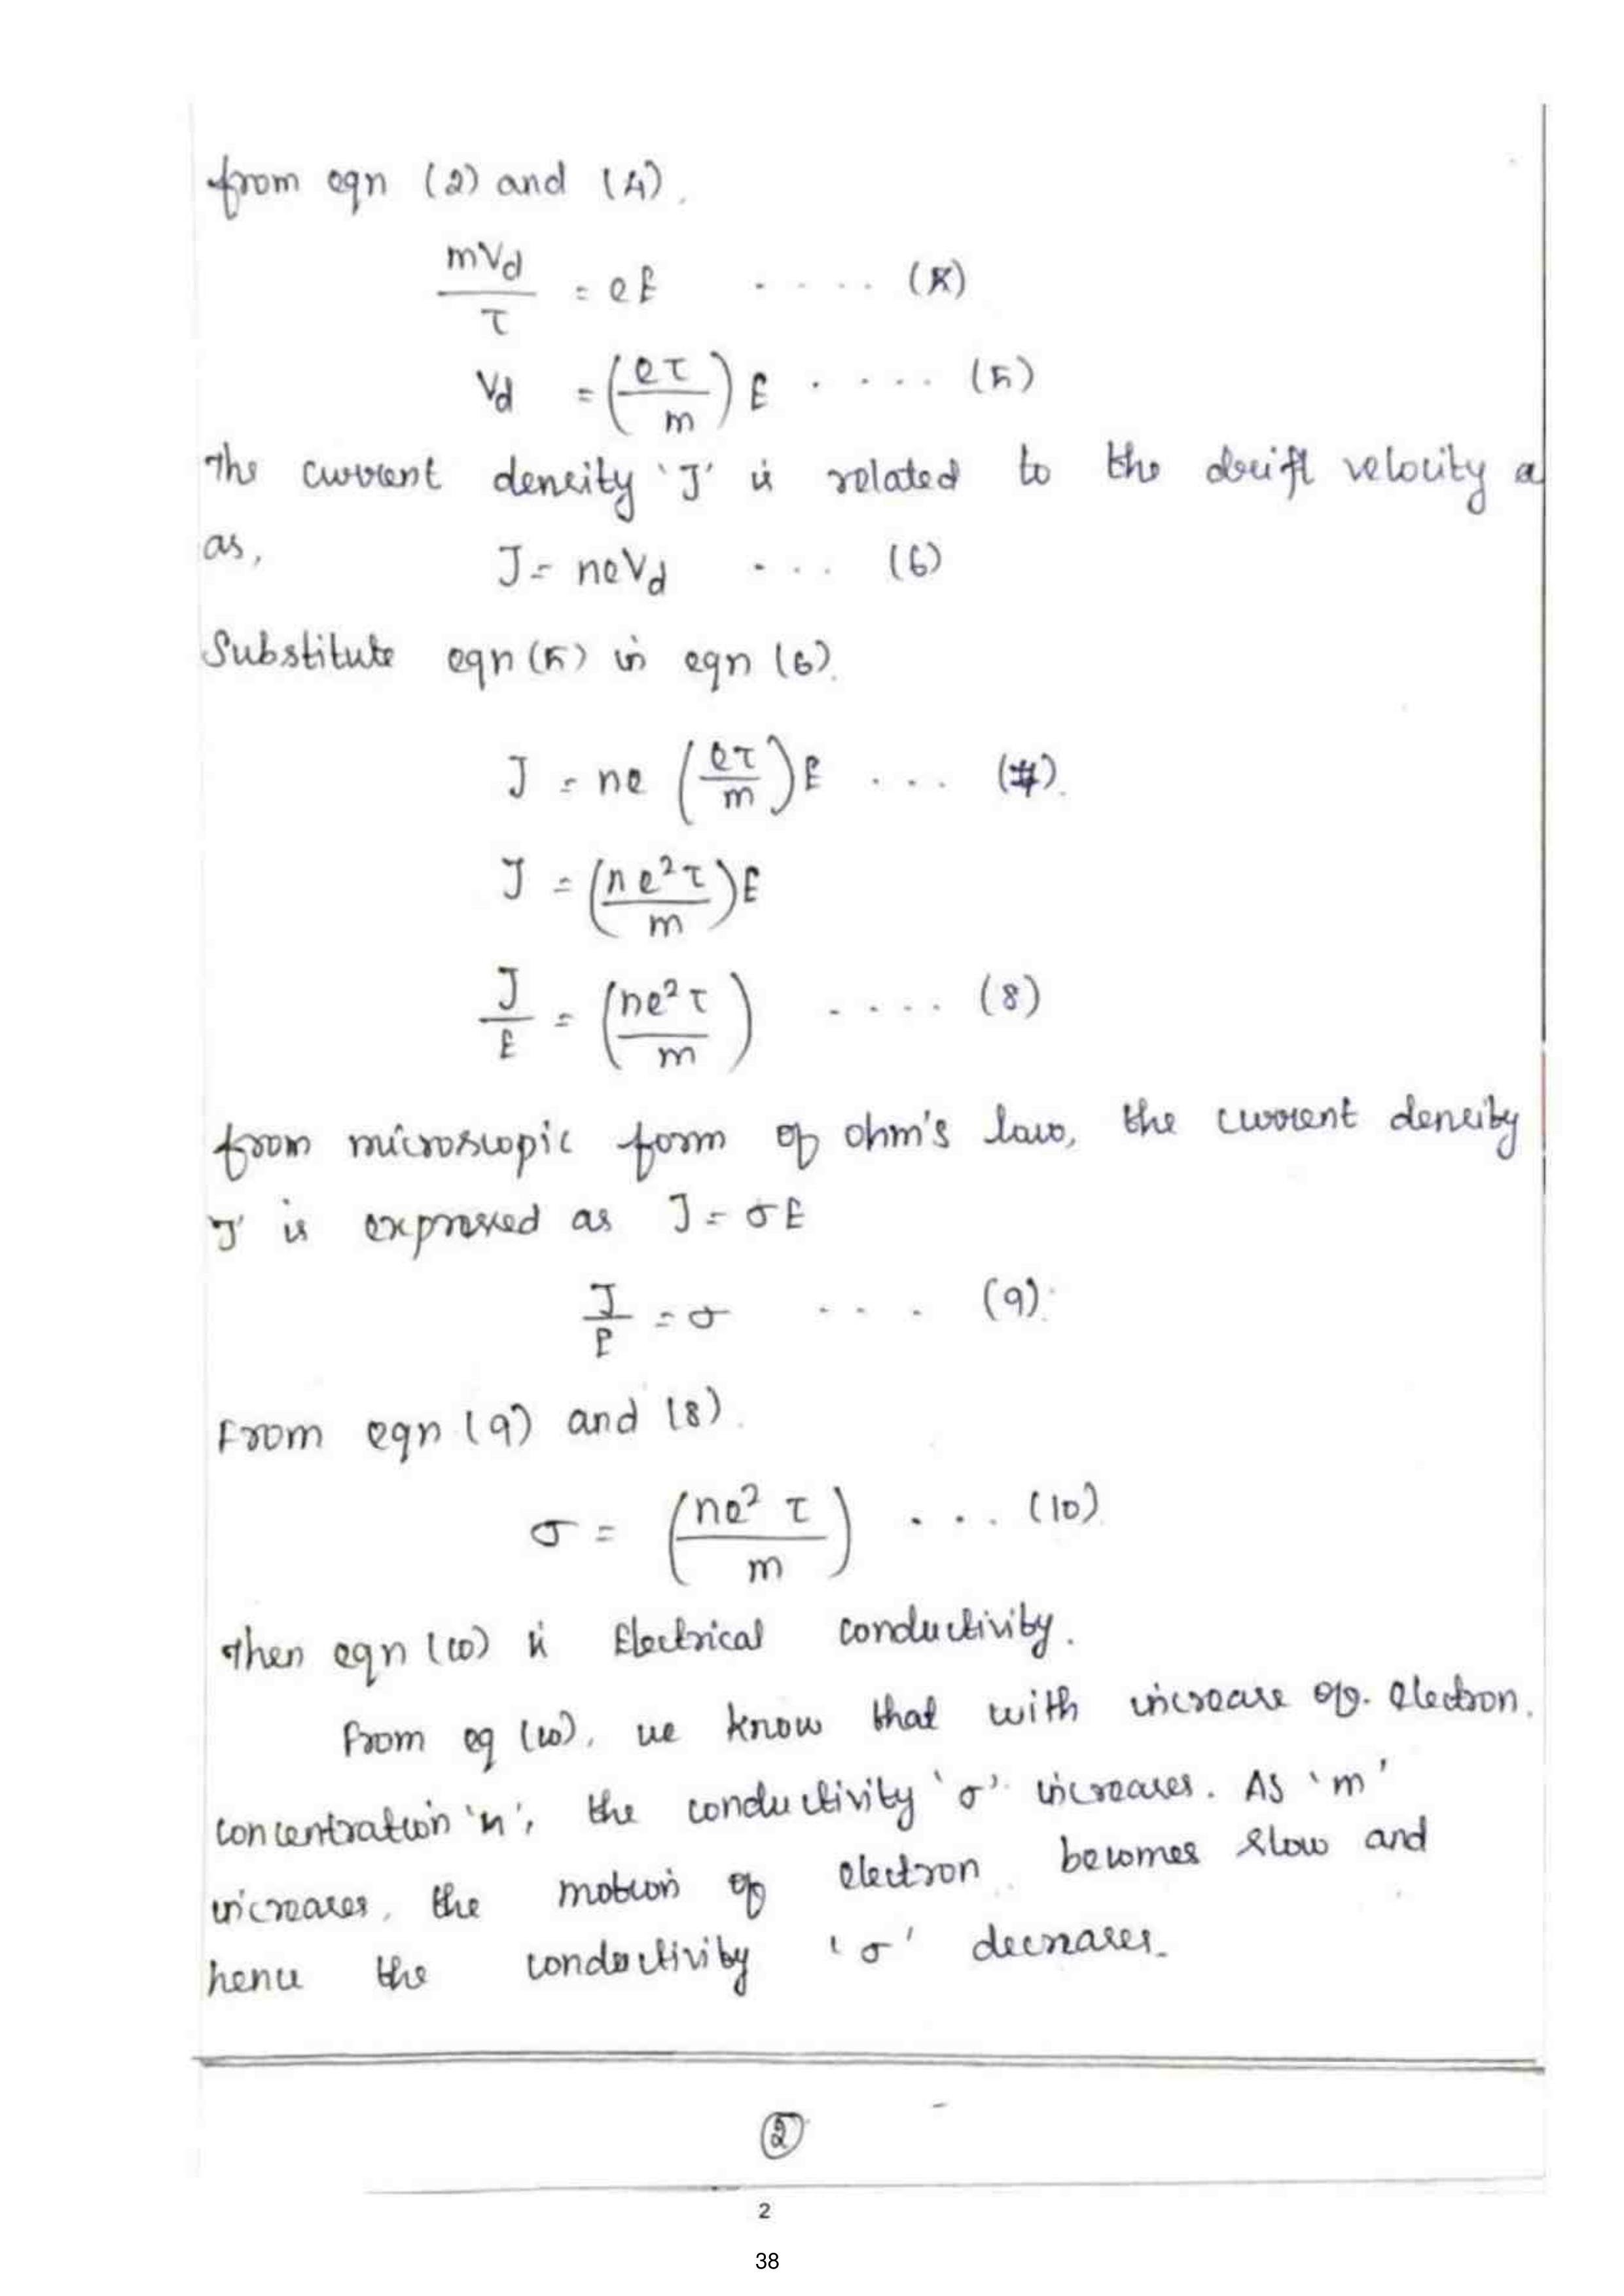 from eqn (2) and (4).
mVd/τ = eE .... (5)
Vd = (eτ/m) E ..... (5)
The current density 'J' is related to the drift velocity a
as, J = neVd .... (6)
Substitute eqn (5) in eqn (6).
J = ne (eτ/m) E ... (7).
J = (ne²τ/m) E
J/E = (ne²τ/m) .... (8)
from microscopic form of ohm's law, the current density
'J' is expressed as J = σE
J/E = σ .... (9).
From eqn (9) and (8).
σ = (ne² τ/m) .... (10)
Then eqn (10) is Electrical conductivity.
From eq (10), we know that with increase of electron.
concentration 'n', the conductivity 'σ' increases. As 'm'
increases, the motion of electron becomes slow and
hence the conductivity 'σ' decreases.
2
2
38